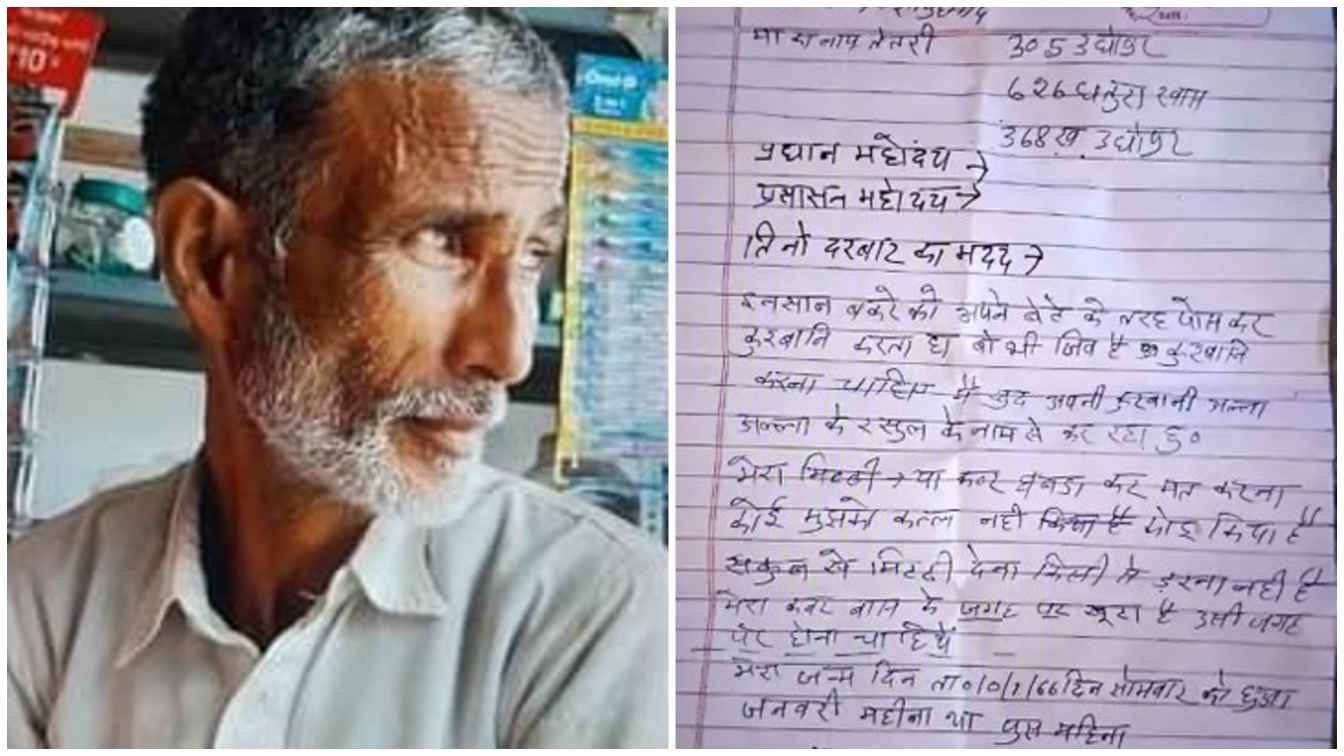 10
मा का नाम तेतरी 305 उधोपुर
626 धतुरा खास
368ख उधोपुर
प्रधान महोदय →
प्रसासन महोदय →
तिनो दरबार का मदद →
इनसान बकरे को अपने बेटे के तरह पोस कर
कुरबानि करता है वो भी जिव है कुरबानि
करना चाहिए मै खुद अपनी कुरबानी अल्ला
अल्ला के रसुल के नाम से कर रहा हु०
मेरा मिटटी → या कबर घबड़ा कर मत करना
कोई मुझको कत्ल नही किया है
सकुन से मिटटी देना किसी से डरना नही है
मेरा कबर बास के जगह पर खूटा है उसी जगह
पर होना चाहिये
मेरा जन्म दिन सोमवार को हुआ
जनवरी महीना था पुस महिना